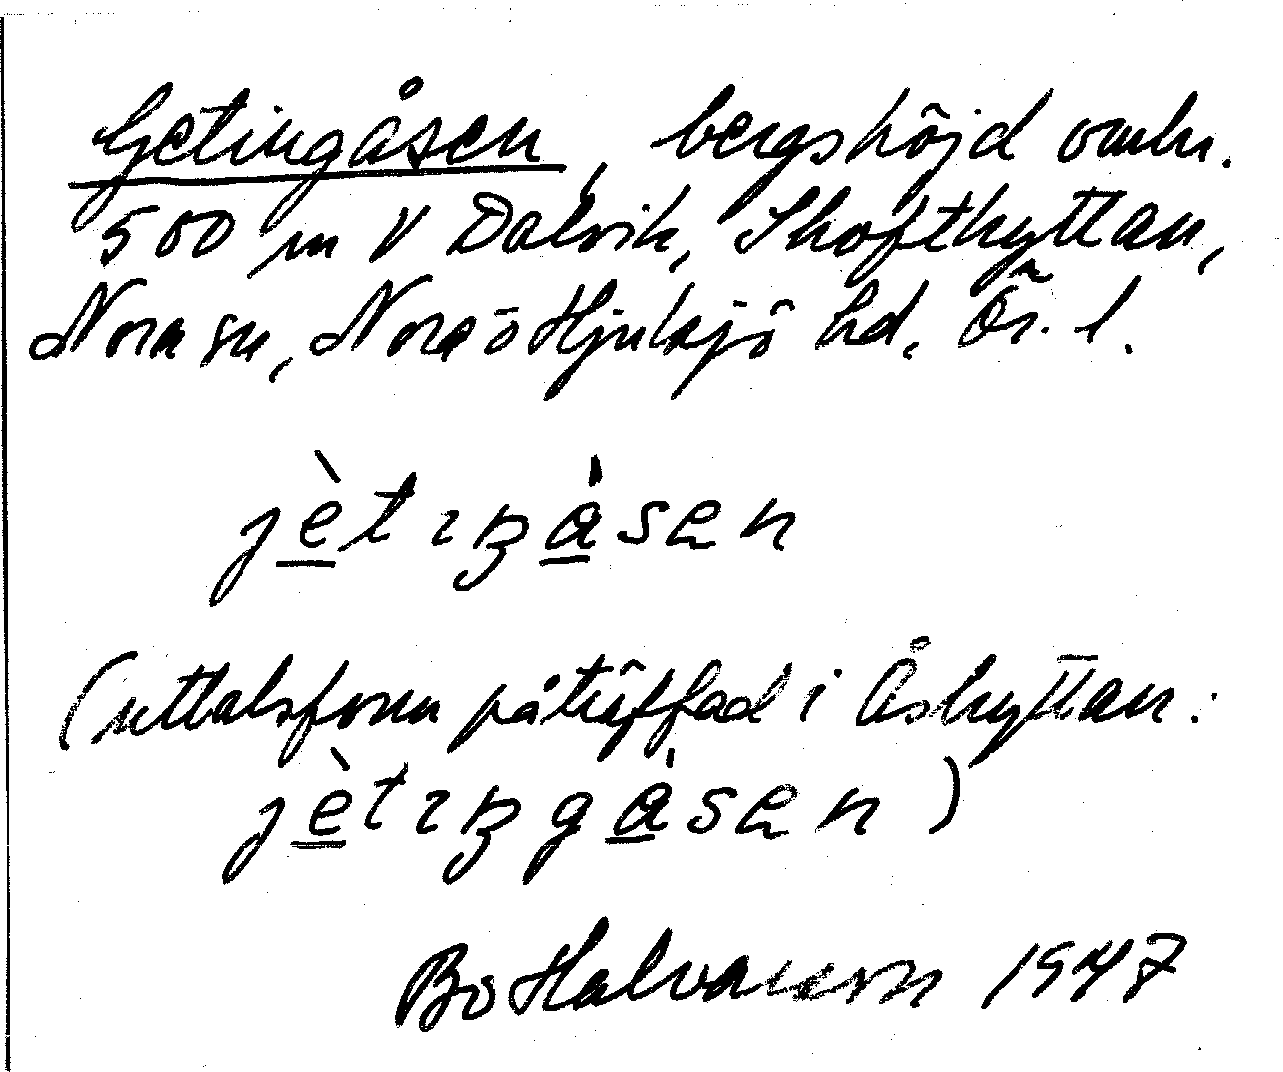 Getingåsen, bergshöjd omkr.
500 m V Dalvik, Skofthyttan,
Nora sn, Nora o Hjulsjö hd, Ör. l.
jètıŋåsen
(uttalsform påträffad i Åshyttan:
jètıŋgåsen)
Bo Halvarsson 1947